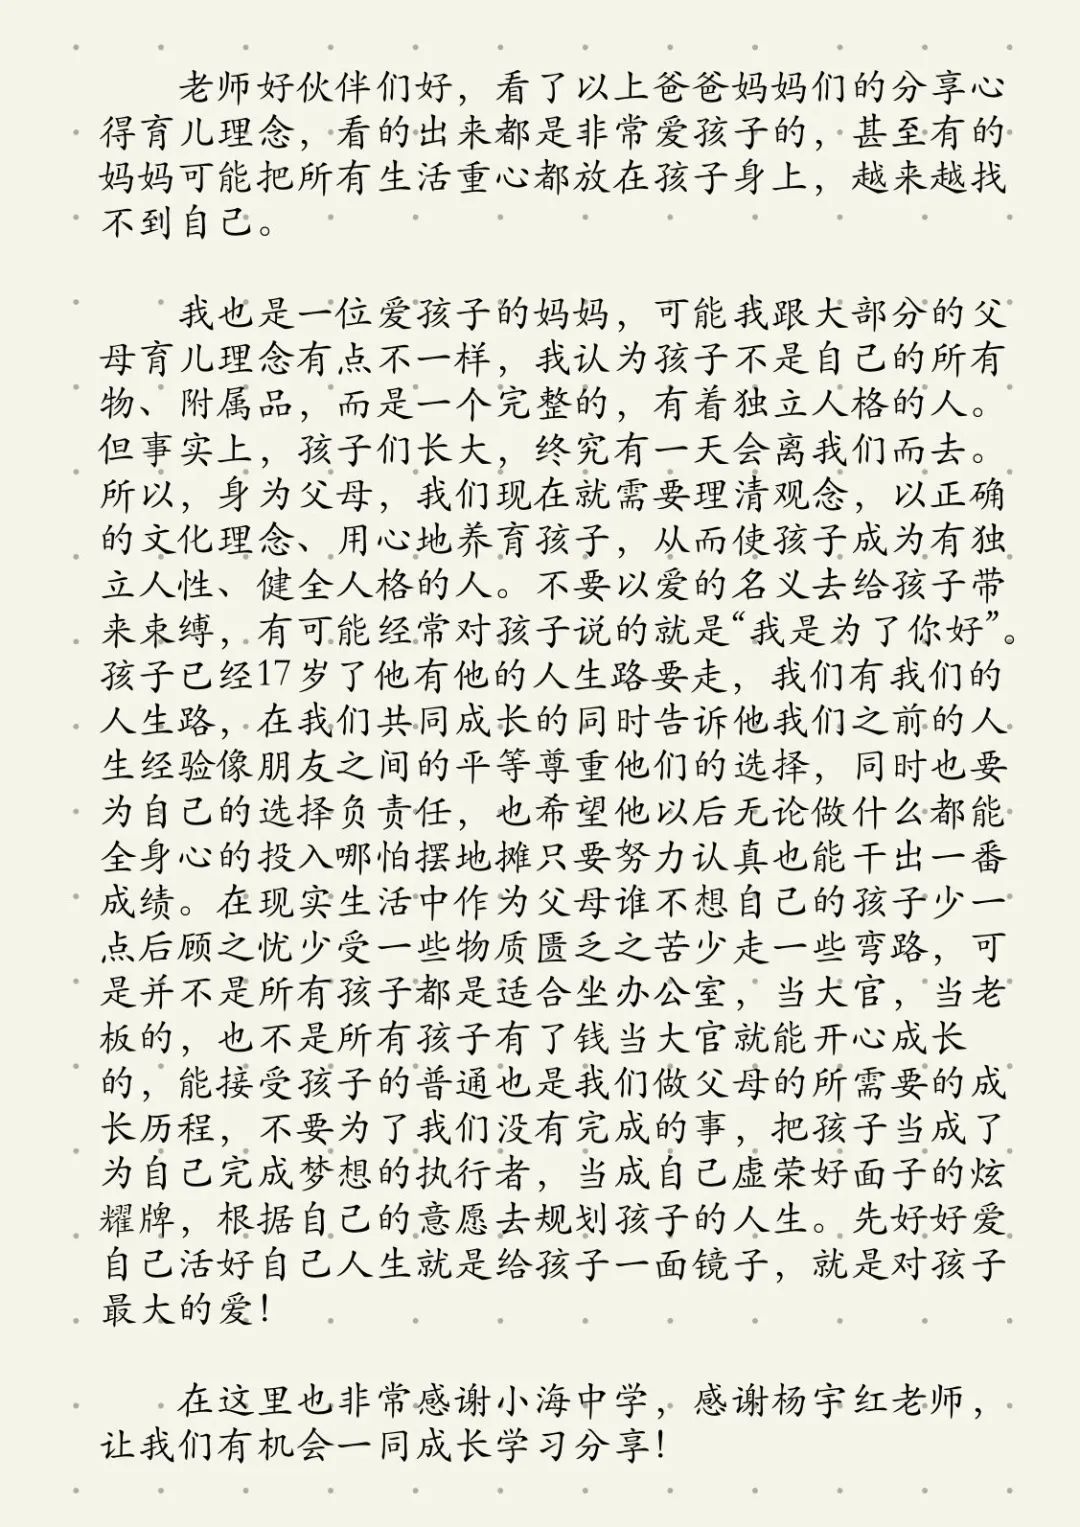 老师好伙伴们好，看了以上爸爸妈妈们的分享心
得育儿理念，看的出来都是非常爱孩子的，甚至有的
妈妈可能把所有生活重心都放在孩子身上，越来越找
不到自己。
我也是一位爱孩子的妈妈，可能我跟大部分的父
母育儿理念有点不一样，我认为孩子不是自己的所有
物、附属品，而是一个完整的，有着独立人格的人。
但事实上，孩子们长大，终究有一天会离我们而去。
所以，身为父母，我们现在就需要理清观念，以正确
的文化理念、用心地养育孩子，从而使孩子成为有独
立人性、健全人格的人。不要以爱的名义去给孩子带
来束缚，有可能经常对孩子说的就是“我是为了你好”。
孩子已经17岁了他有他的人生路要走，我们有我们的
人生路，在我们共同成长的同时告诉他我们之前的人
生经验像朋友之间的平等尊重他们的选择，同时也要
为自己的选择负责任，也希望他以后无论做什么都能
全身心的投入哪怕摆地摊只要努力认真也能干出一番
成绩。在现实生活中作为父母谁不想自己的孩子少一
点后顾之忧少受一些物质匮乏之苦少走一些弯路，可
是并不是所有孩子都是适合坐办公室，当大官，当老
板的，也不是所有孩子有了钱当大官就能开心成长
的，能接受孩子的普通也是我们做父母的所需要的成
长历程，不要为了我们没有完成的事，把孩子当成了
为自己完成梦想的执行者，当成自己虚荣好面子的炫
耀牌，根据自己的意愿去规划孩子的人生。先好好爱
自己活好自己人生就是给孩子一面镜子，就是对孩子
最大的爱！
在这里也非常感谢小海中学，感谢杨宇红老师，
让我们有机会一同成长学习分享！